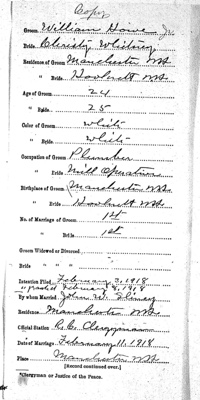 Copy
Groom William Howe
Bride Christy Whitney
Residence of Groom Manchester NH
" Bride Hooksett NH
Age of Groom 24
" Bride 25
Color of Groom White
" Bride White
Occupation of Groom Plumber
" Bride Mill Operative
Birthplace of Groom Manchester NH
" Bride Hooksett NH
No. of Marriage of Groom 1st
" Bride 1st
Groom Widowed or Divorced
Bride " "
Intention Filed February 3, 1918
" granted February 8, 1918
By whom Married John W.
Residence Manchester NH
Official Station R.C. Clergyman
Date of Marriage February 11, 1918
Place Manchester NH
[Record continued over.]
*Clergyman or Justice of the Peace.